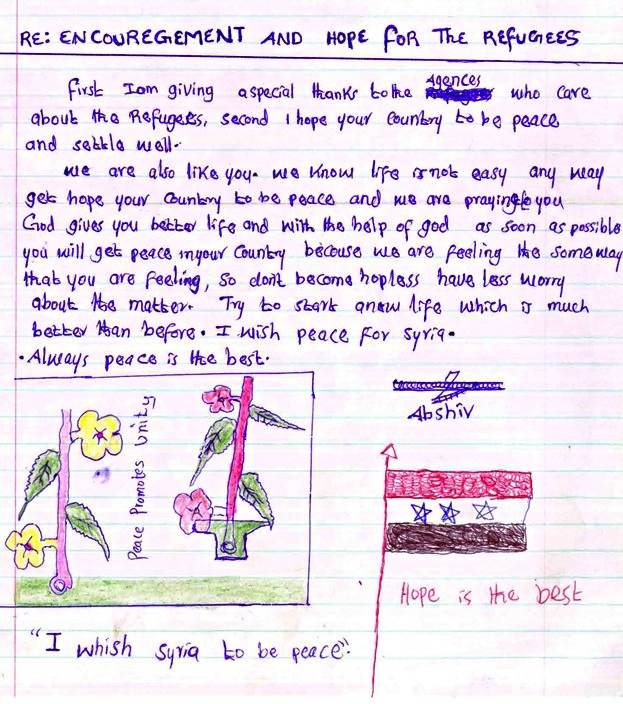 RE: ENCOUREGEMENT AND HOPE FOR The REFUGEES
first Iam giving aspecial thanks to the Agences who care
about the Refugees, second I hope your Country to be peace
and settle well.
we are also like you. we know life is not easy any way
get hope your Country to be peace and we are praying to you
God gives you better life and with the help of god as soon as possible
you will get peace in your Country becouse we are feeling the same way
that you are feeling, so don't become hopless have less worry
about the matter. Try to start anew life which is much
better than before. I wish peace for Syria.
• Always peace is the best.
Peace Promotes Unity
Abshiv
Hope is the best
"I whish Syria to be peace".